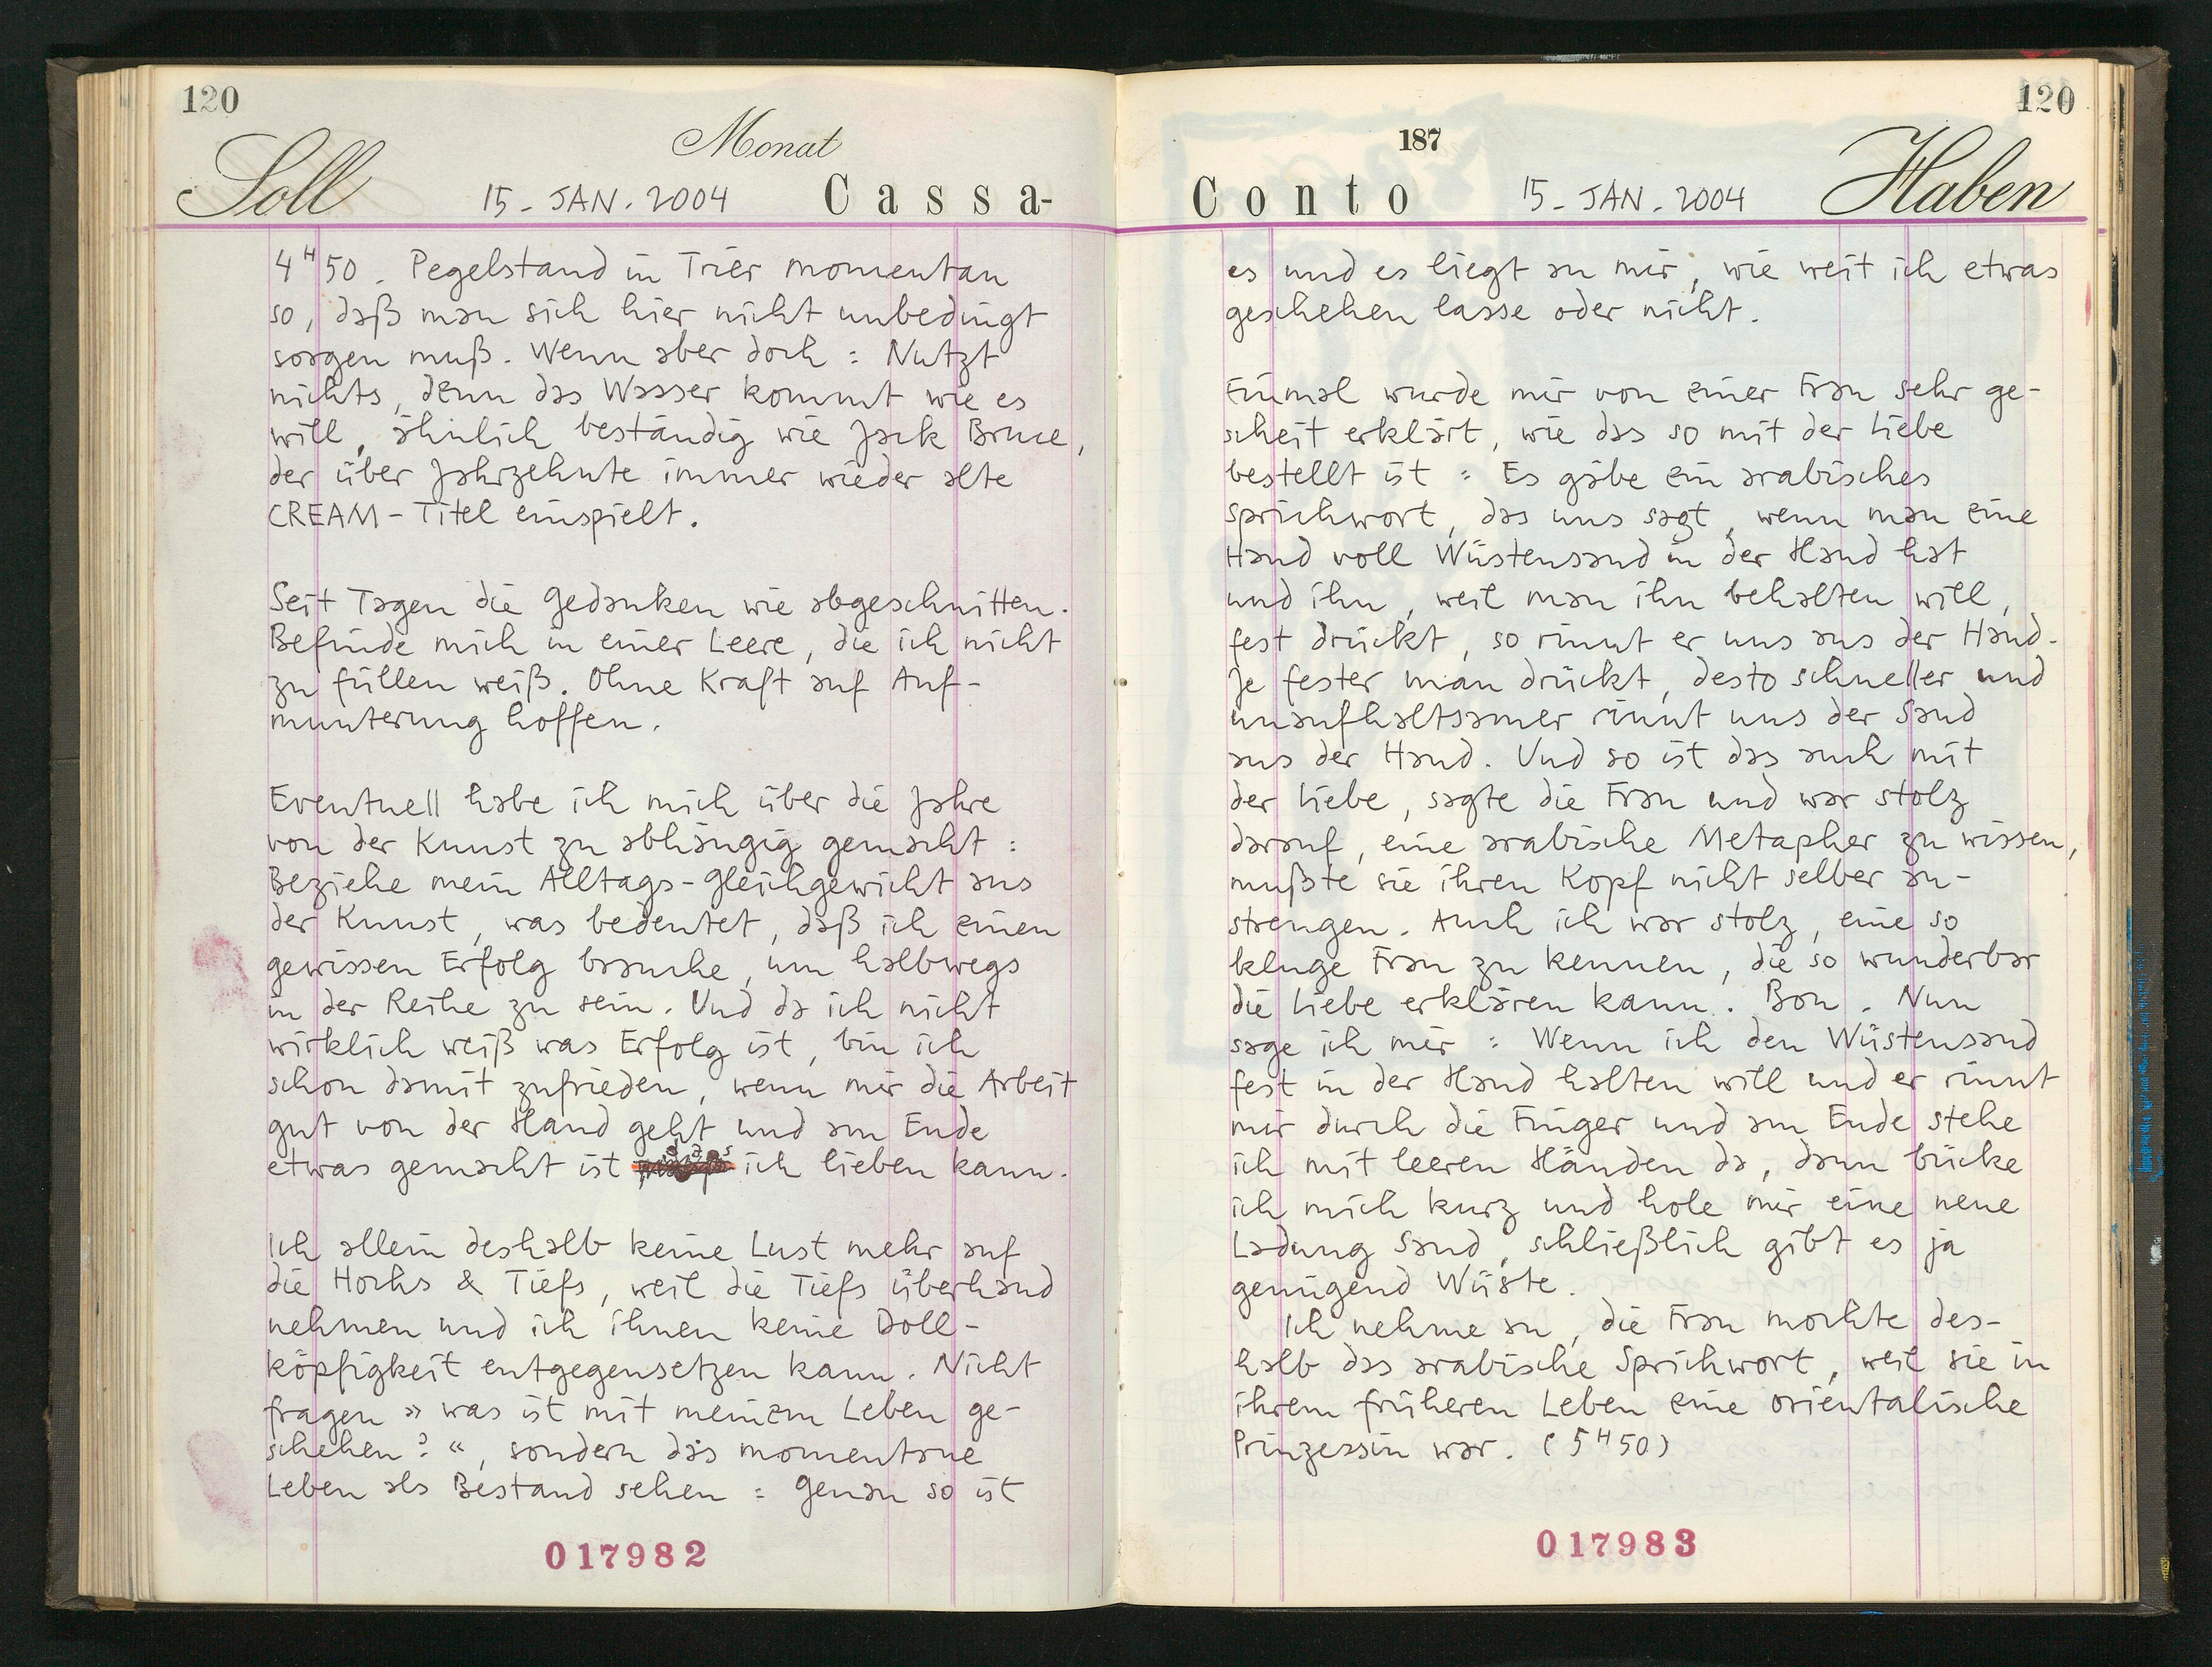 120
Monat
Soll
15. JAN. 2004
Cassa-
4ᴴ50. Pegelstand in Trier momentan
so, daß man sich hier nicht unbedingt
sorgen muß. Wenn aber doch: Nutzt
nichts, denn das Wasser kommt wie es
will, ähnlich beständig wie Jack Bruce,
der über Jahrzehnte immer wieder alte
CREAM-Titel einspielt.
Seit Tagen die Gedanken wie abgeschnitten.
Befinde mich in einer Leere, die ich nicht
zu füllen weiß. Ohne Kraft auf Auf-
munterung hoffen.
Eventuell habe ich mich über die Jahre
von der Kunst zu abhängig gemacht:
Beziehe mein Alltags-Gleichgewicht aus
der Kunst, was bedeutet, daß ich einen
gewissen Erfolg brauche, um halbwegs
in der Reihe zu sein. Und da ich nicht
wirklich weiß was Erfolg ist, bin ich
schon damit zufrieden, wenn mir die Arbeit
gut von der Hand geht und am Ende
etwas gemacht ist das ich lieben kann.
Ich allein deshalb keine Lust mehr auf
die Hochs & Tiefs, weil die Tiefs überhand
nehmen und ich ihnen keine Doll-
köpfigkeit entgegensetzen kann. Nicht
fragen »was ist mit meinem Leben ge-
schehen?«, sondern das momentane
Leben als Bestand sehen: Genau so ist
017982
120
187
Conto
15. JAN. 2004
Haben
es und es liegt an mir, wie weit ich etwas
geschehen lasse oder nicht.
Einmal wurde mir von einer Frau sehr ge-
scheit erklärt, wie das so mit der Liebe
bestellt ist: Es gäbe ein arabisches
Sprichwort, das uns sagt, wenn man eine
Hand voll Wüstensand in der Hand hat
und ihn, weil man ihn behalten will,
fest drückt, so rinnt er uns aus der Hand.
Je fester man drückt, desto schneller und
unaufhaltsamer rinnt uns der Sand
aus der Hand. Und so ist das auch mit
der Liebe, sagte die Frau und war stolz
darauf, eine arabische Metapher zu wissen,
mußte sie ihren Kopf nicht selber an-
strengen. Auch ich war stolz, eine so
kluge Frau zu kennen, die so wunderbar
die Liebe erklären kann. Bon. Nun
sage ich mir: Wenn ich den Wüstensand
fest in der Hand halten will und er rinnt
mir durch die Finger und am Ende stehe
ich mit leeren Händen da, dann bücke
ich mich kurz und hole mir eine neue
Ladung Sand, schließlich gibt es ja
genügend Wüste.
Ich nehme an, die Frau mochte des-
halb das arabische Sprichwort, weil sie in
ihrem früheren Leben eine orientalische
Prinzessin war. (5ᴴ50)
017983